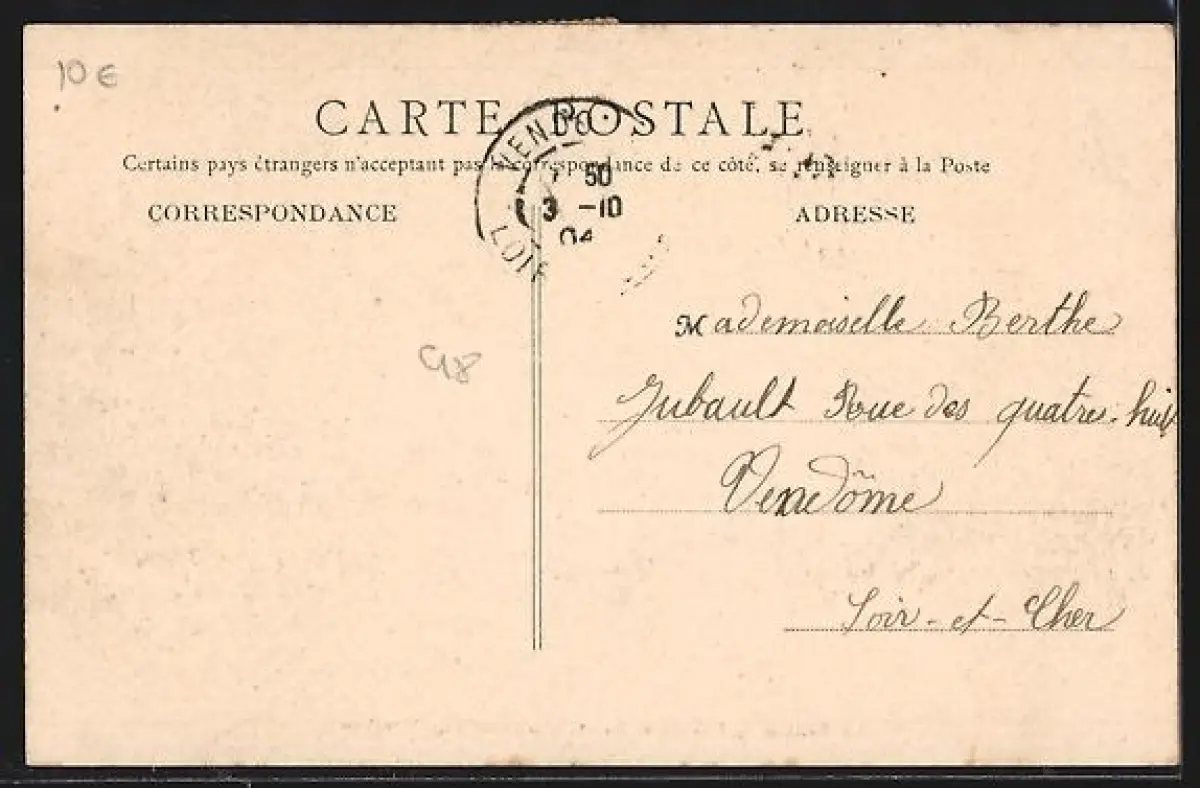 10 €
CARTE POSTALE
Certains pays étrangers n'acceptant pas la correspondance de ce côté, se renseigner à la Poste
CORRESPONDANCE
ADRESSE
VENDO
50
3 -10
04
LOIR
Mademoiselle Berthe
Jubault Rue des quatres-huil
Vendôme
Loir-et-Cher